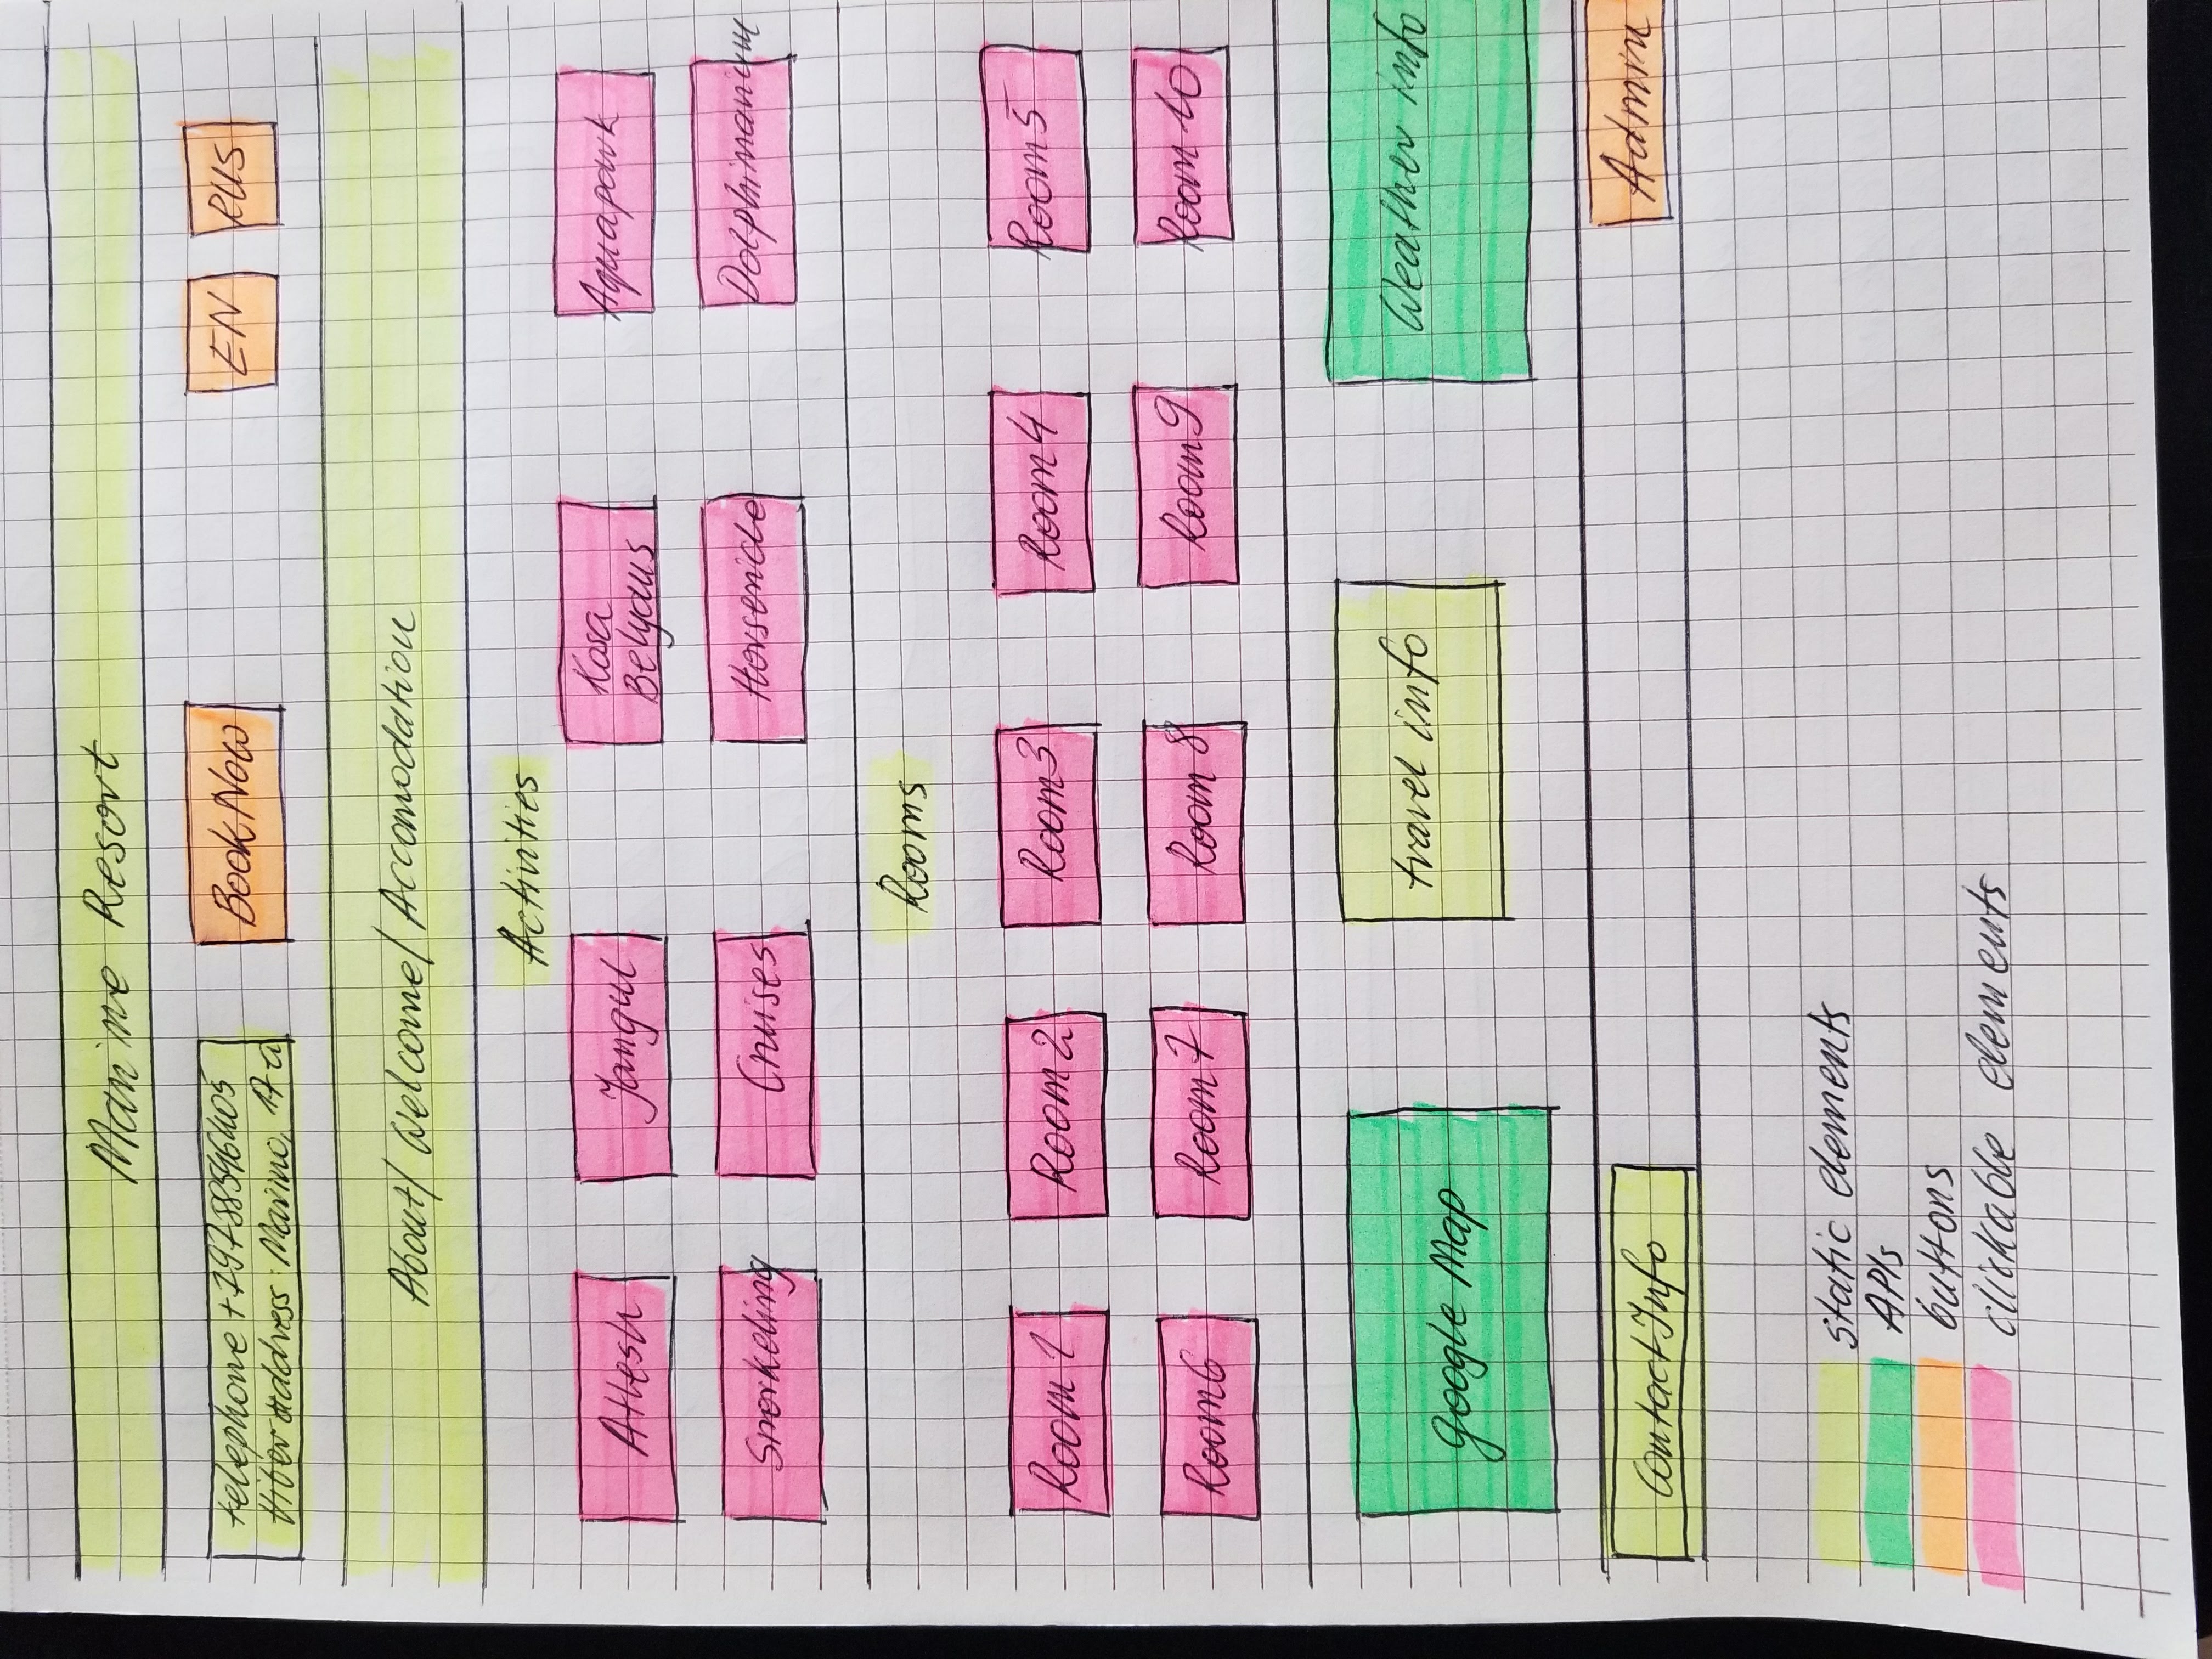 Marine Resort
telephone +79788546405
Viber address: Marino, 17-a
Book Now
EN
RUS
About/ Welcome/ Accomodation
Activities
Atlesh
Jangul
Kosa
Belyaus
Aquapark
Snorkeling
Cruises
Horseride
Dolphinarium
Rooms
Room 1
Room 2
Room 3
Room 4
Room 5
Room 6
Room 7
Room 8
Room 9
Room 10
Google Map
travel info
Weather info
Contact Info
Admin
static elements
APIs
buttons
clickable elements